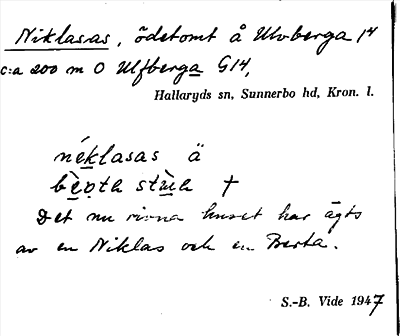 Niklasas, ödetomt å Ulvberga 14
c:a 200 m O Ulfberga G14,
Hallaryds sn, Sunnerbo hd, Kron. l.
néklasas ä
bèȩta stùa †
Det nu rivna huset har ägts
av en Niklas och en Berta.
S.-B. Vide 1947